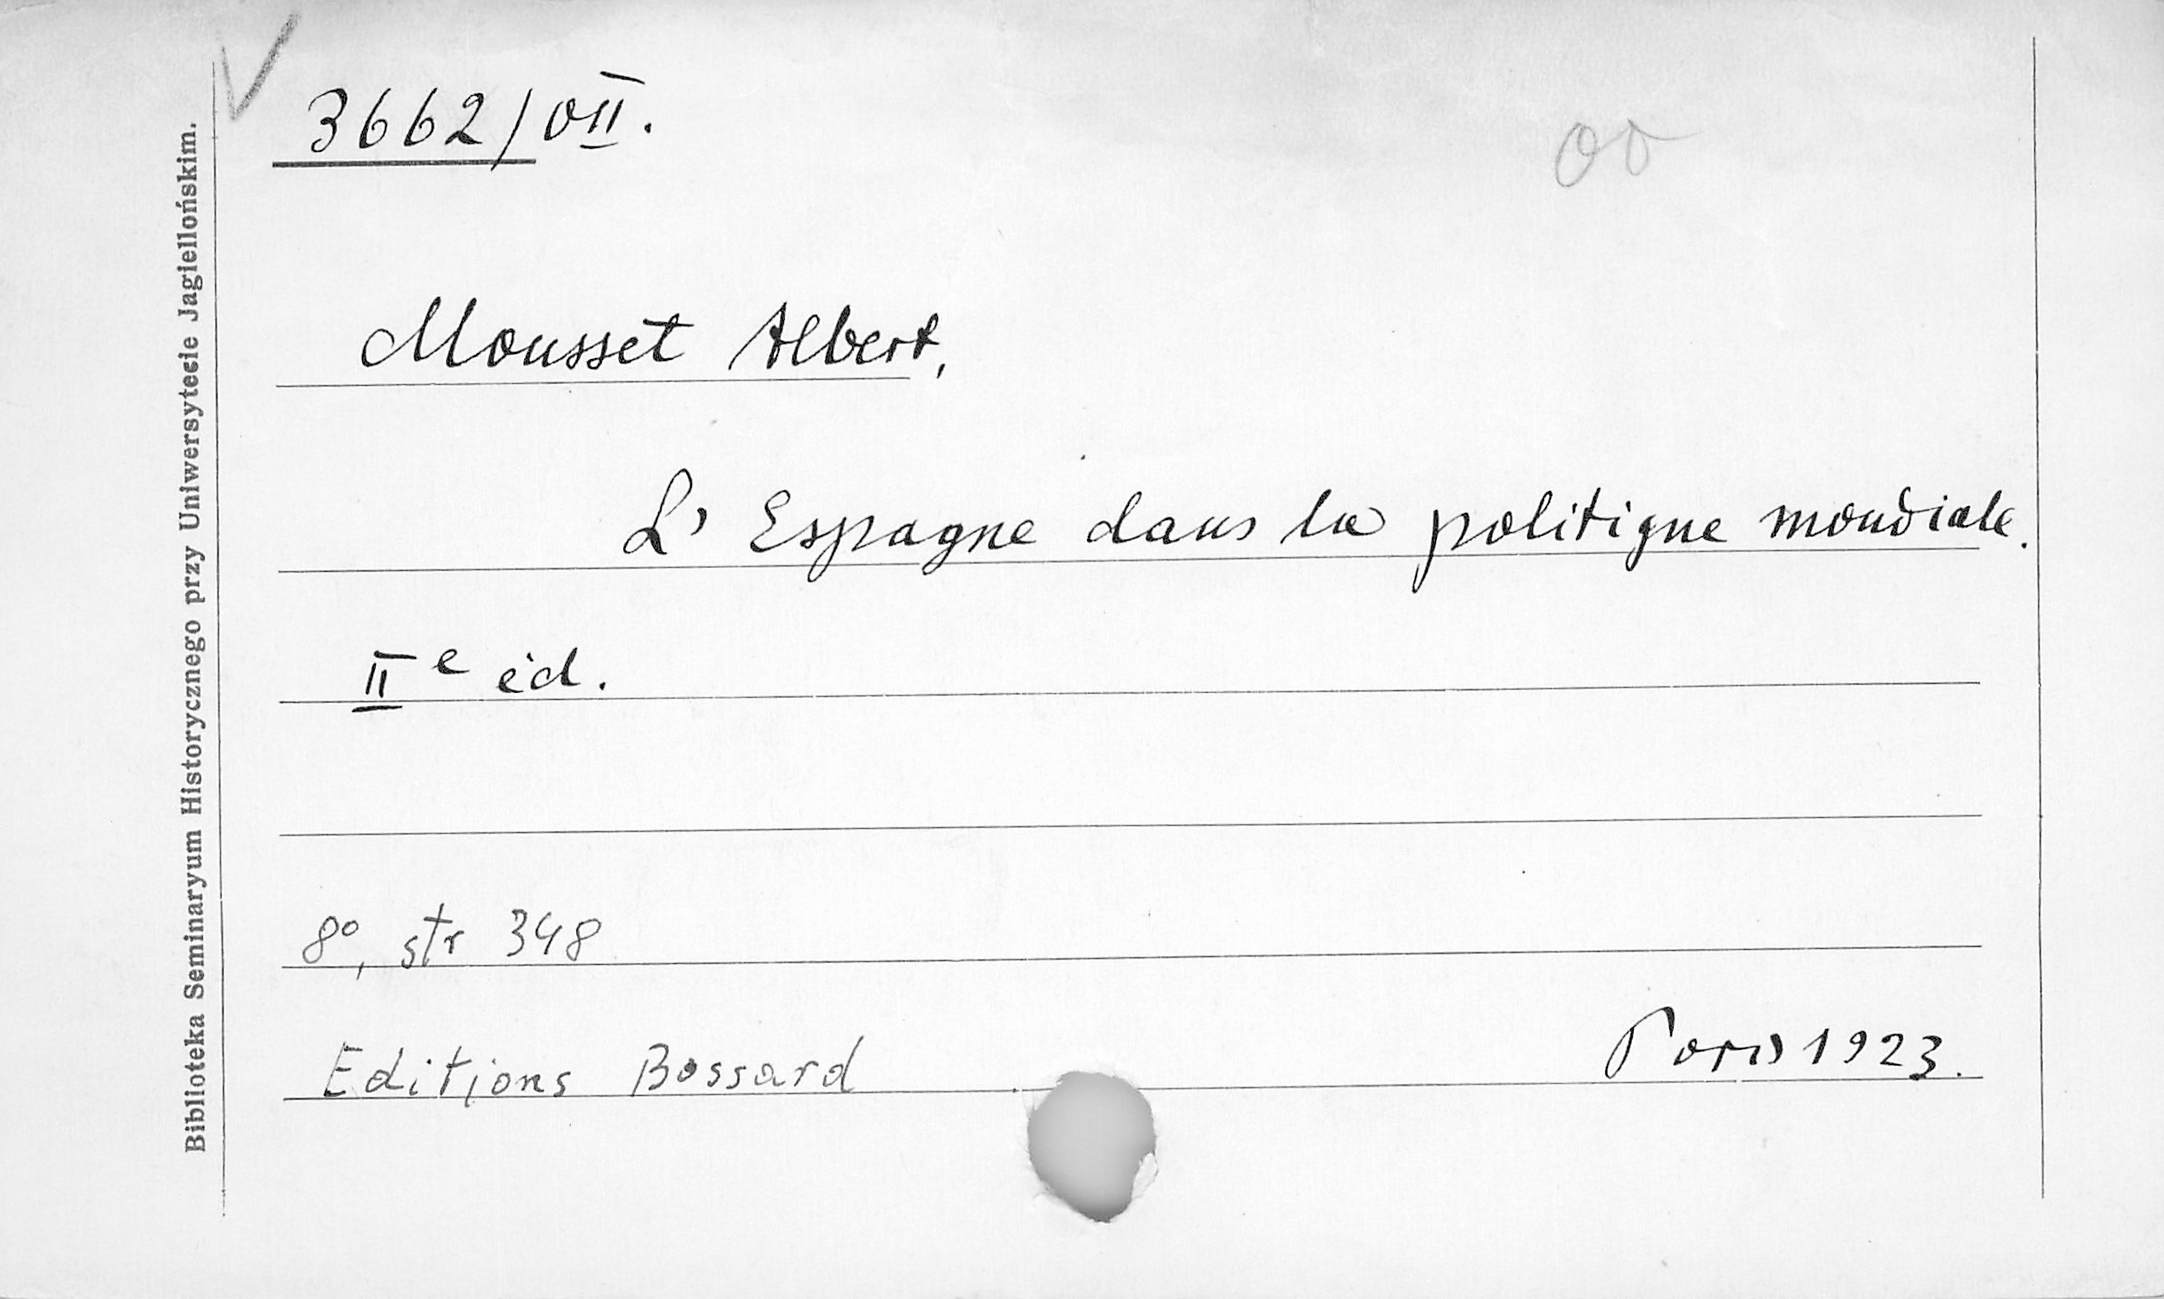 3662/OII.
oo
Mousset Albert,
L' Espagne dans la politique mondiale.
II e éd.
8°, str 348
Editions Bossard
Paris 1923.
Biblioteka Seminaryum Historycznego przy Uniwersytecie Jagiellońskim.